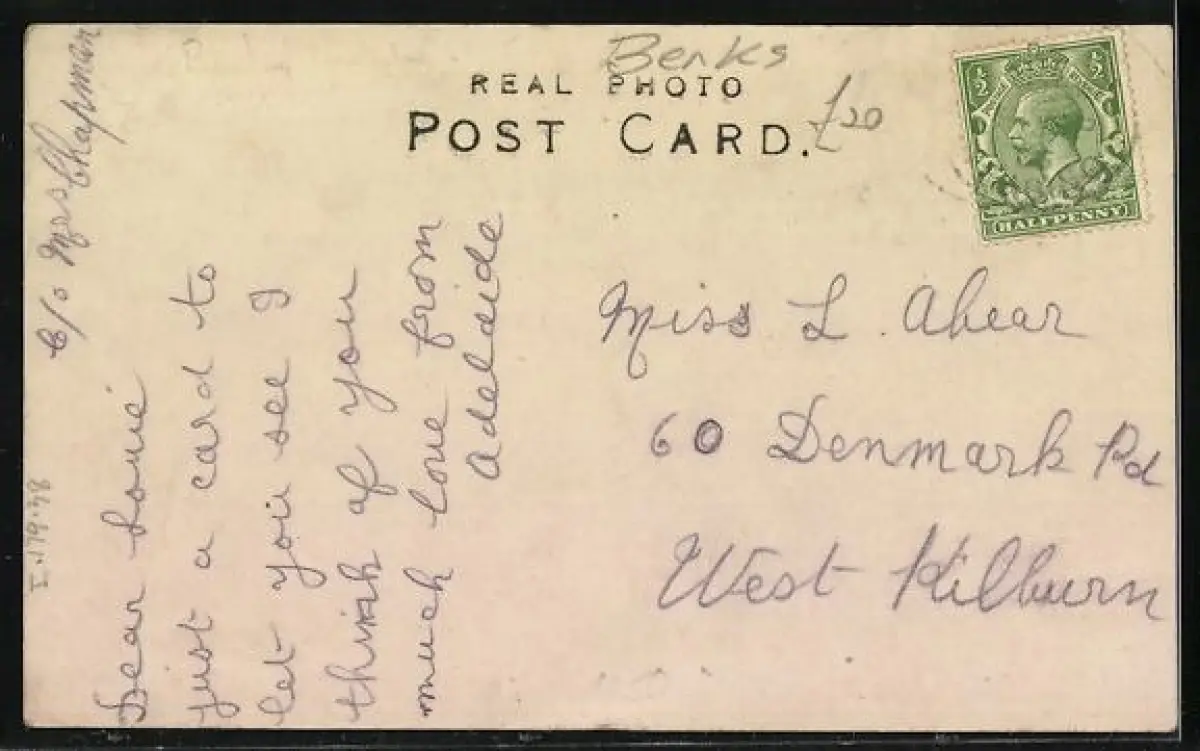 Berks
REAL PHOTO
POST CARD.
£20
½ ½
HALFPENNY
c/o Mrs Chapman
Dear Louie
just a card to
let you see I
think of you
much love from
Adelaide
Miss L. Ahear
60 Denmark Rd
West Kilburn